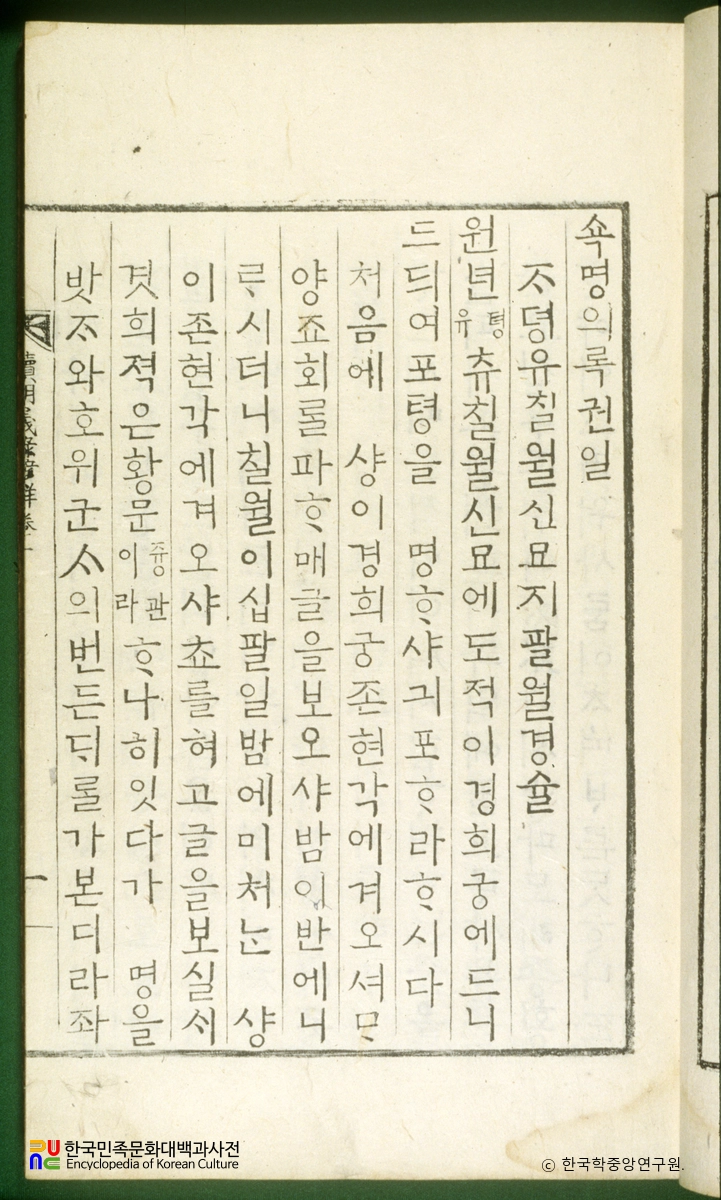 쇽명의록권일
ᄌᆞ뎡유칠월신묘지팔월경슐
원년뎡유츄칠월신묘에도적이경희궁에드니
드듸여포텽을 명ᄒᆞ샤긔포ᄒᆞ라ᄒᆞ시다
처음에 샹이경희궁존현각에겨오셔ᄆᆡ
양죠회롤파ᄒᆞ매글을보오샤밤이반에니
르시더니칠월이십팔일밤에미처ᄂᆞᆫ 샹
이존현각에겨오샤쵸를혀고글을보실ᄉᆡ
겻희젹은황문즁관이라ᄒᆞ나히잇다가 명을
밧ᄌᆞ와호위군ᄉᆞ의번든ᄃᆡ롤가본디라좌
한국민족문화대백과사전
Encyclopedia of Korean Culture
ⓒ 한국학중앙연구원.